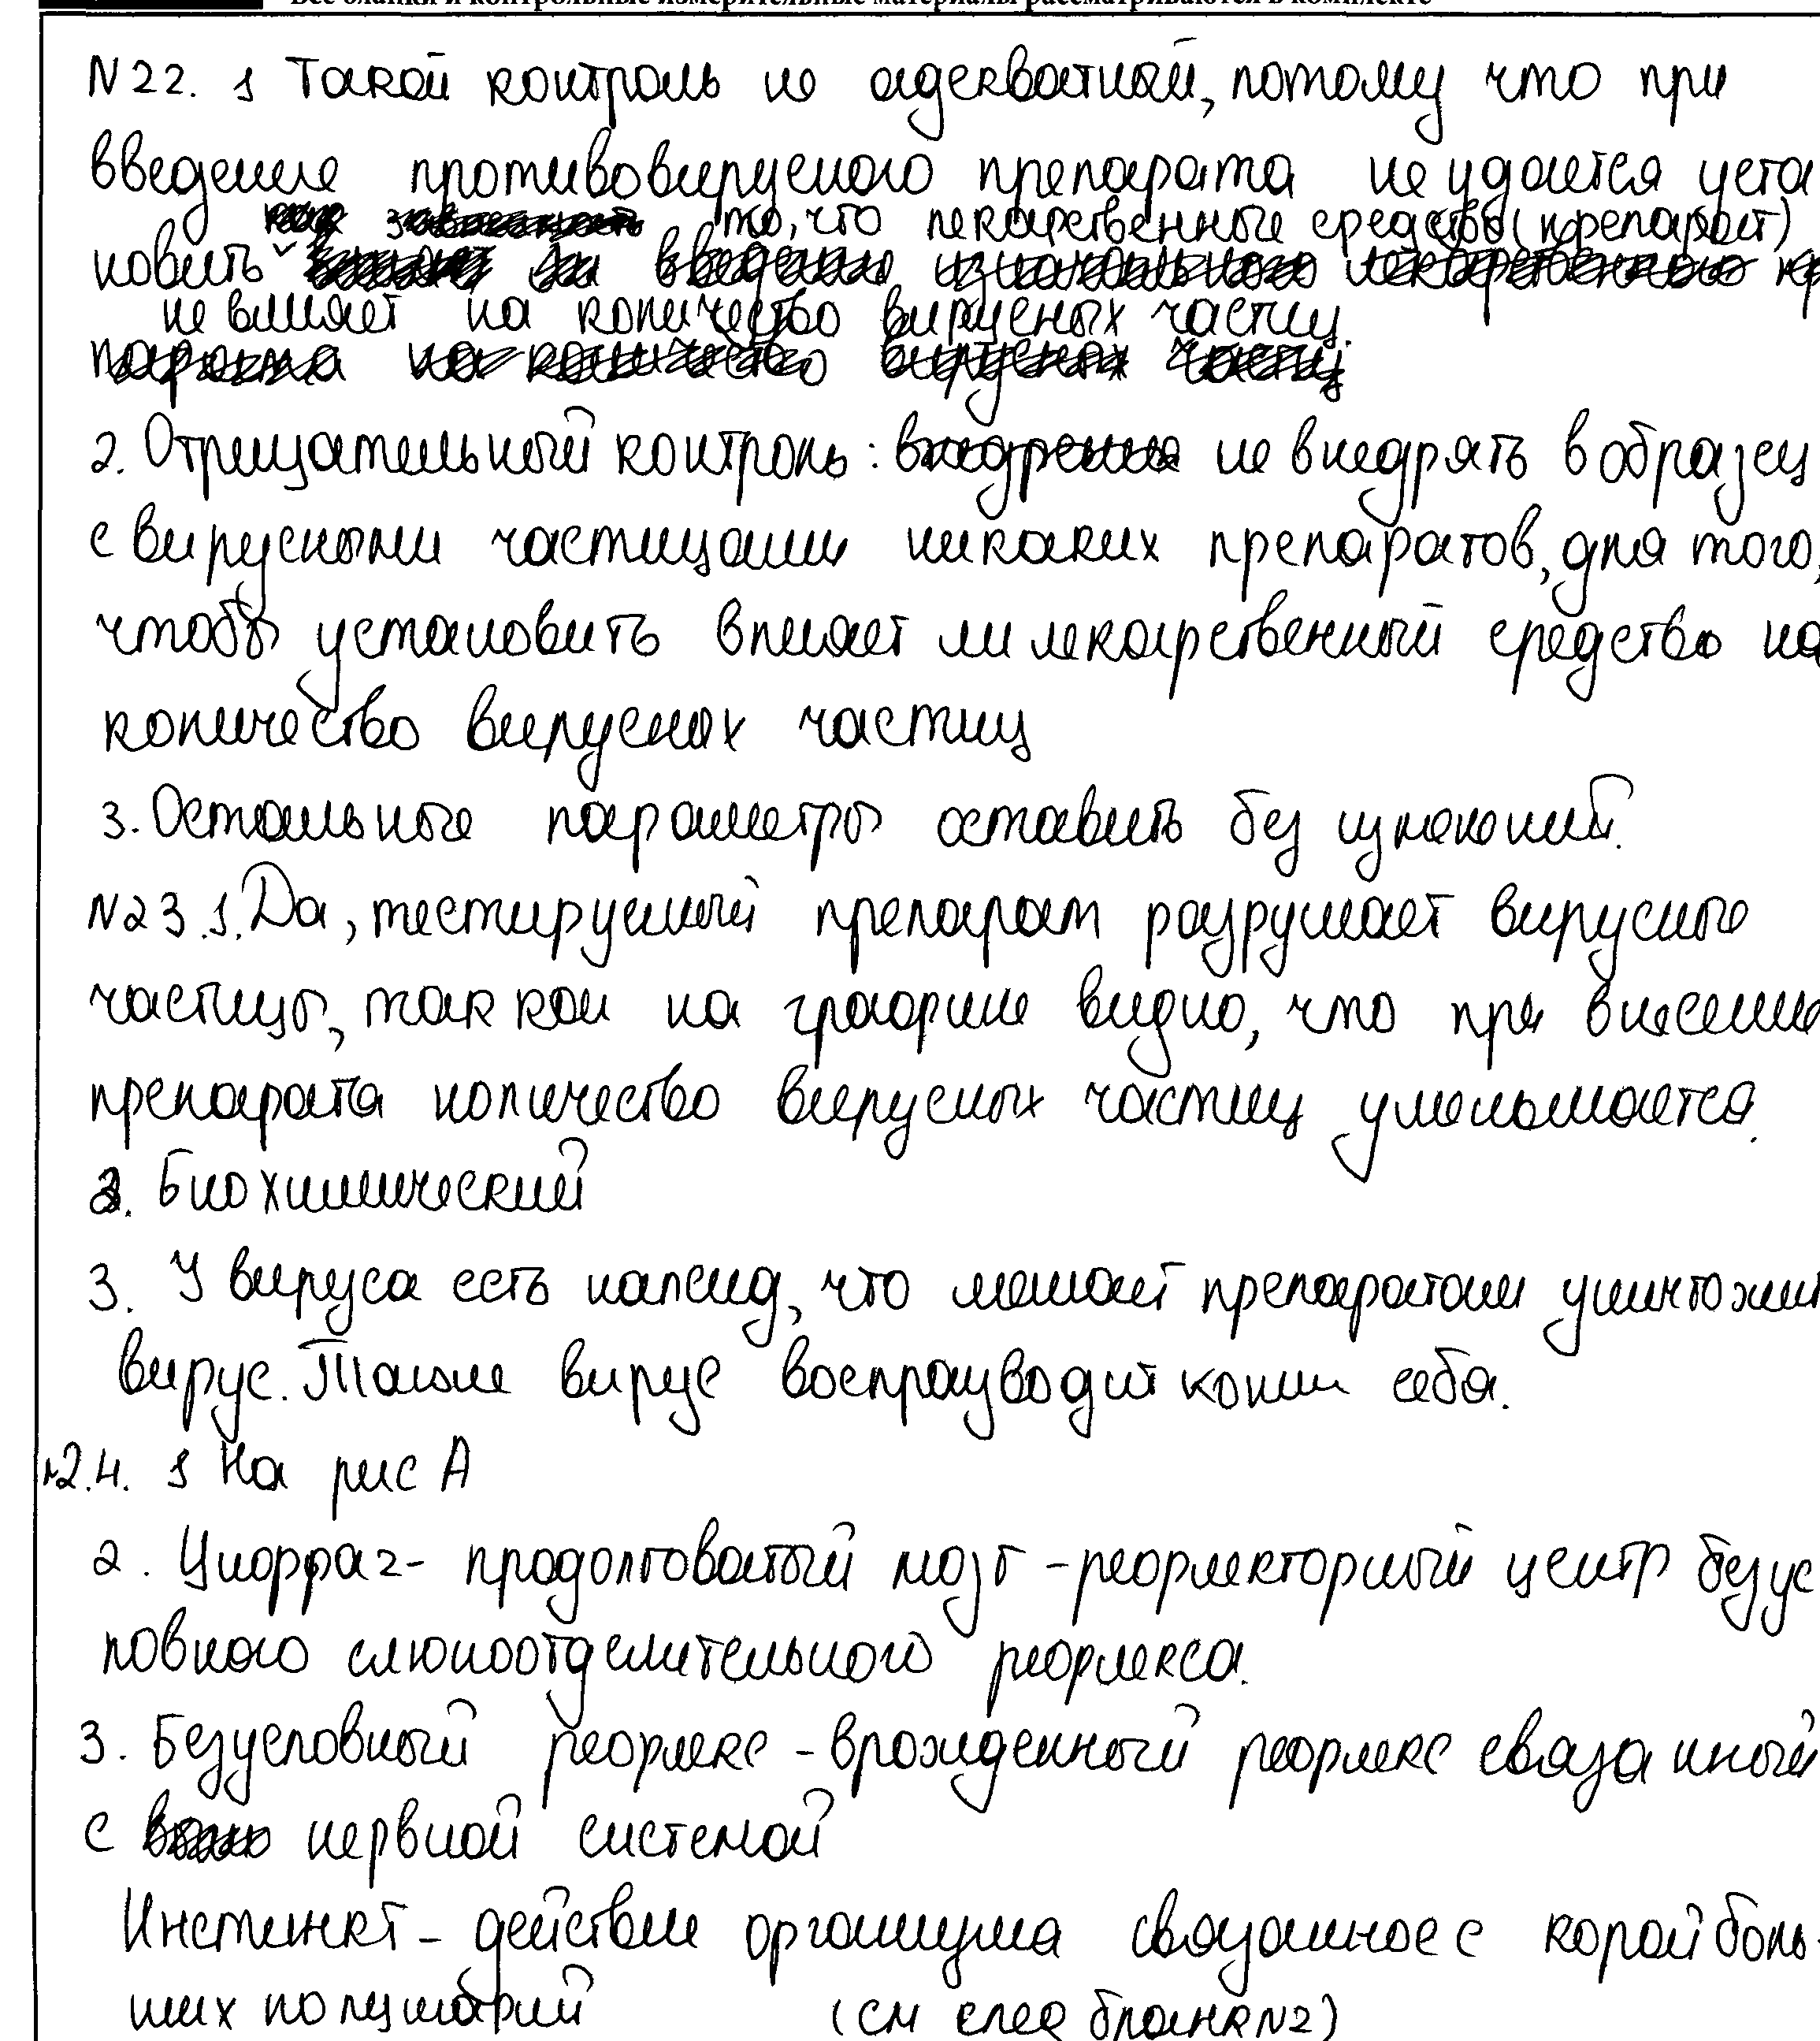 Все бланки и контрольные измерительные материалы рассматриваются в комплекте
N22. 1 Такой контроль не адекватный, потому что при
введение противовирусного препарата не удается уста
то, что лекарственные средства (препарат)
новить
не влияет на количество вирусных частиц.
2. Отрицательный контроль: не внедрять в образец
с вирусными частицами никаких препаратов, для того,
чтобы установить влияет ли лекарственный средство на
количество вирусных частиц
3. Остальные параметры оставить без изменений.
N23.1. Да, тестируемый препарат разрушает вирусные
частицы, так как на графике видно, что при внесение
препарата количество вирусных частиц уменьшается.
2. Биохимический
3. У вируса есть капсид, что мешает препаратам уничтожит
вирус. Также вирус воспроизводит копии себя.
N24. 1 На рис А
2. Цифра 2 - продолговатый мозг - рефлекторный центр безус
ловного слюноотделительного рефлекса.
3. Безусловный рефлекс - врожденный рефлекс связанный
с нервной системой
Инстинкт - действие организма связанное с корой боль-
ших полушарий (см след бланк N2)